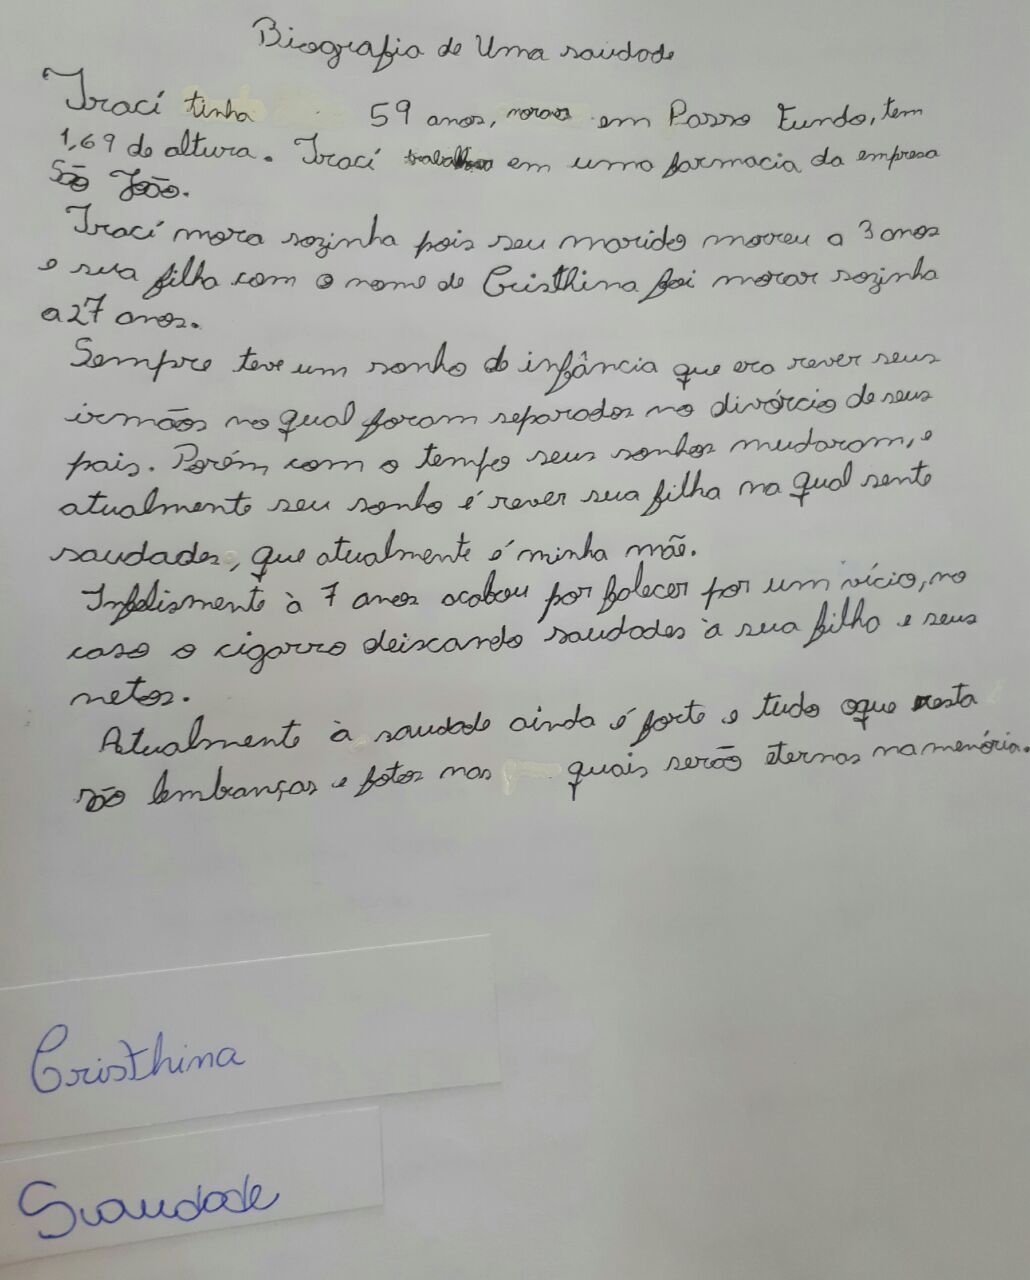 Biografia de Uma saudade
Iraci tinha 59 anos, morava em Passo Fundo, tem
1,69 de altura. Iraci trabalhava em uma farmacia da empresa
São João.
Iraci mora sozinha pois seu marido morreu a 3 anos
e sua filha com o nome de Cristhina foi morar sozinha
a 27 anos.
Sempre teve um sonho de infância que era rever seus
irmãos no qual foram separados no divórcio de seus
pais. Porém, com o tempo seus sonhos mudaram, e
atualmente seu sonho é rever sua filha na qual sente
saudades, que atualmente é minha mãe.
Infelismente à 7 anos acabou por falecer por um vício, no
caso o cigarro deixando saudades à sua filha e seus
netos.
Atualmente à saudade ainda é forte e tudo oque resta
são lembranças e fotos nas quais serão eternas na menória.
Cristhina
Saudade